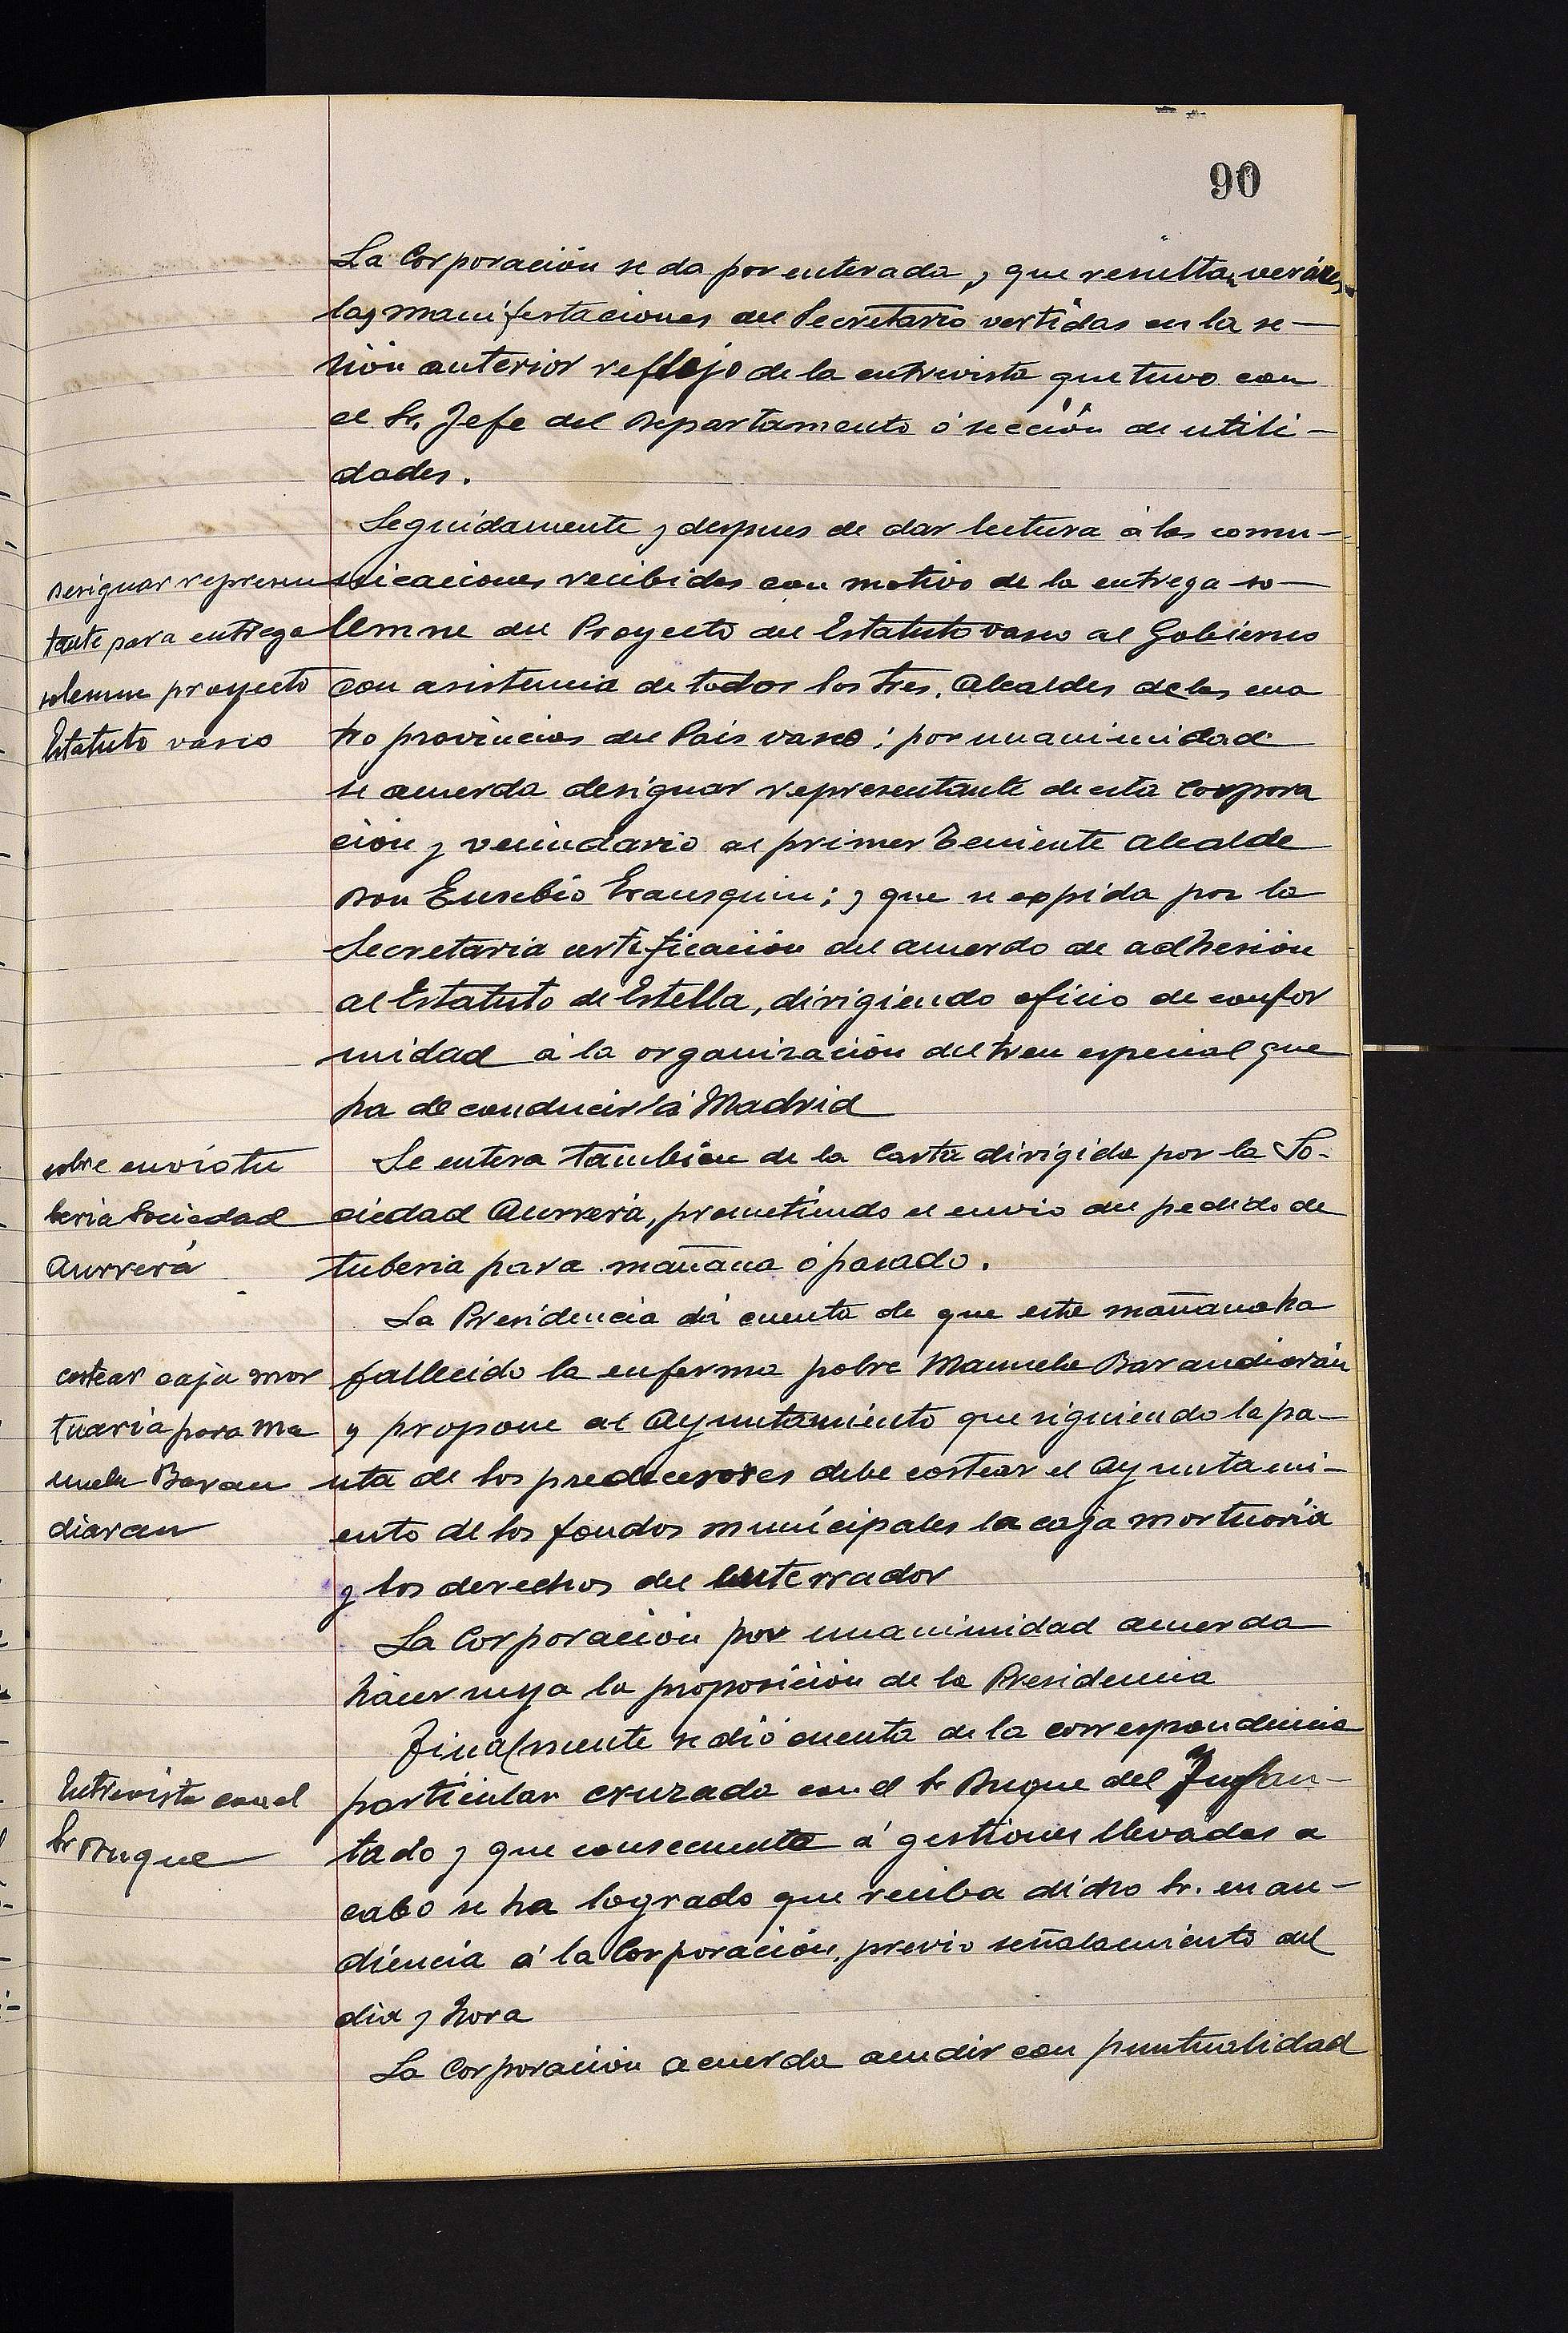 90
La Corporación se da por enterada, y que resultan veraces
las manifestaciones del Secretario vertidas en la se-
sión anterior reflejo de la entrevista que tuvo con
el Sr. Jefe del Departamento ó sección de utili-
dades.
Seguidamente y despues de dar lectura á las comu-
nicaciones recibidas con motivo de la entrega so-
lemne del Proyecto del Estatuto vasco al Gobierno
con asistencia de todos los Sres. Alcaldes de las cua
tro provincias del Pais vasco; por unanimidad
se acuerda designar representante de esta Corpora
ción y vecindario al primer Teniente Alcalde
Don Eusebio Erausquin; y que se expida por la
Secretaria certificación del acuerdo de adhesión
al Estatuto de Estella, dirigiendo oficio de confor
midad a la organización del tren especial que
ha de conducirlos á Madrid
Designar represen
tante para entrega
solemne proyecto
Estatuto vasco
Se entera también de la Carta dirigida por la So-
ciedad Aurrerá, prometiendo el envio del pedido de
tuberia para mañana ó pasado.
sobre envio tu
beria Sociedad
Aurrerá
La Presidencia dá cuenta de que esta mañana ha
fallecido la enferma pobre Manuela Barandiarán
y propone al Ayuntamiento que siguiendo la pa-
uta de los predecesores debe costear el Ayuntami-
ento de los fondos municipales la caja mortuoria
y los derechos del enterrador
costear caja mor
tuaria para Ma
nuela Baran
diaran
La Corporación por unanimidad acuerda
hacer suya la proposición de la Presidencia
Finalmente se dió cuenta de la correspondencia
particular cruzada con el Sr Duque del Infan-
tado y que consecuente á gestiones llevadas a
cabo se ha logrado que reciba dicho Sr. en au-
diencia á la Corporación, previo señalamiento del
dia y hora
Entrevista con el
Sr Duque
La Corporación acuerda acudir con puntualidad